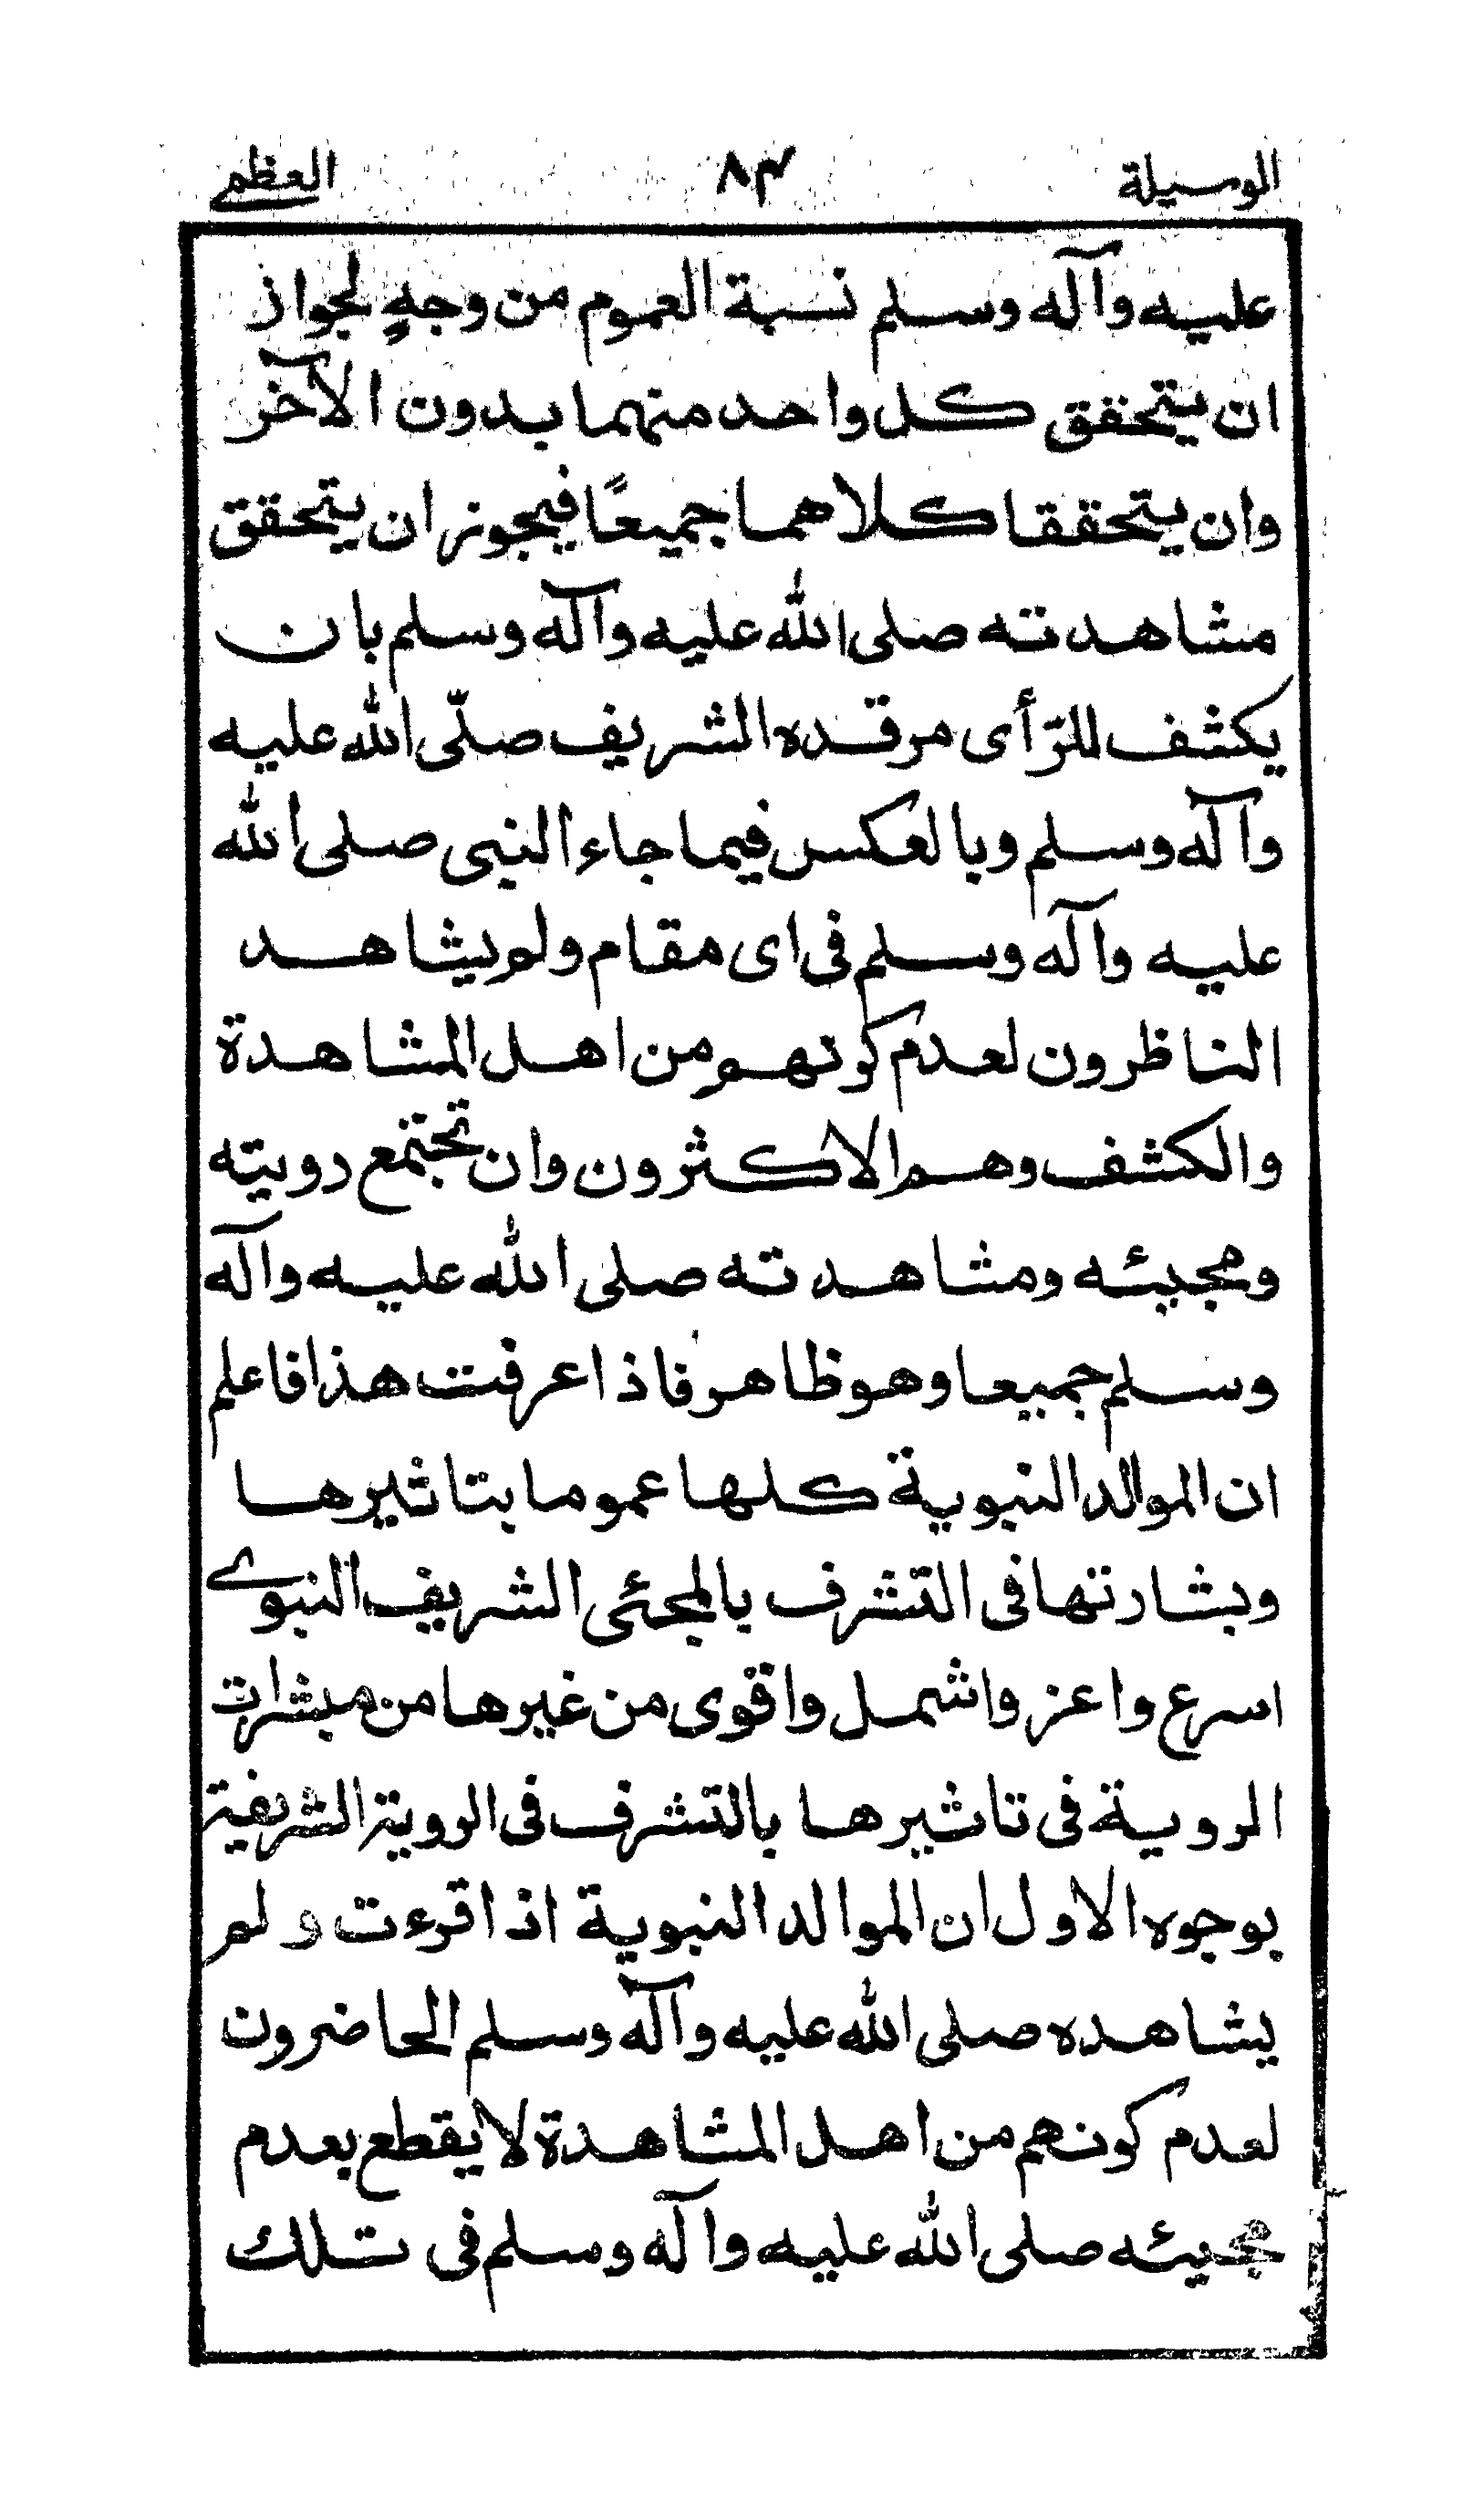 الوسيلة ٨٣ العظمى
عليه وآله وسلم نسبة العموم من وجهٍ لجواز
ان يتحقق كل واحد منهما بدون الآخر
وان يتحققا كلاهما جميعًا فيجوز ان يتحقق
مشاهدته صلى الله عليه وآله وسلم بان
يكشف للرّأى مرقده الشريف صلّى الله عليه
وآله وسلم وبالعكس فيما جاء النبى صلى الله
عليه وآله وسلم فى اى مقام ولم يشاهد
الناظرون لعدم كونهم من اهل المشاهدة
والكشف وهم الاكثرون وان تجتمع رويته
ومجيئه ومشاهدته صلى الله عليه وآله
وسلم جميعا وهو ظاهر فاذا عرفت هذا فاعلم
ان الموالد النبوية كلها عموما بتاثيرها
وبشارتها فى التشرف بالمجئى الشريف النبوى
اسرع واعز واشمل واقوى من غيرها من مبشرات
الروية فى تاثيرها بالتشرف فى الروية الشريفة
بوجوه الاول ان الموالد النبوية اذا قرءت ولم
يشاهده صلى الله عليه وآله وسلم الحاضرون
لعدم كونهم من اهل المشاهدة لا يقطع بعدم
مجيئه صلى الله عليه وآله وسلم فى تلك